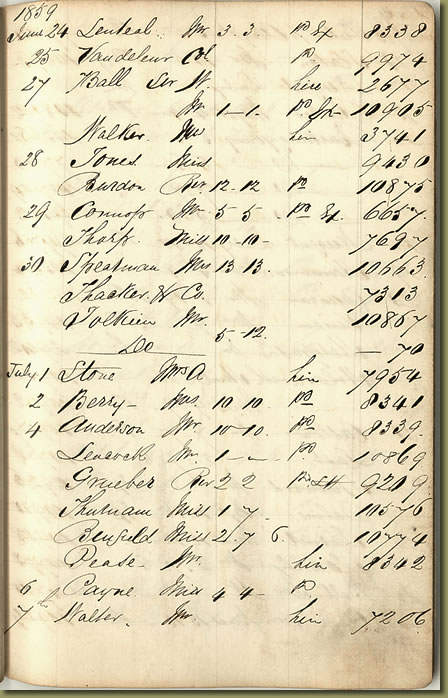 1859
June 24 Lenteal Mr 3. 3. pd Ex 8338
25 Vandeleur Col pd 9974
27 Ball Sir W. 2677
Mr 1-1. pd 10905
Walker Mrs 3741
28 Jones Miss 9430
Burdon Rev 12.12 pd 10875
29 Connop Mr 5 5 pd Ex. 6657
Thorp Miss 10-10- 7697
30 Spearman Mrs 13 13. 10663
Thacker & Co. 7313
Tolkien Mr. 10867
Do 5. 12. — 70
July 1 Stone Mrs A 7954
2 Berry- Mrs 10 10 pd 8341
4 Anderson Mr. 10-10. pd 8339
Mr 1 - - pd 10869
Grueber Rev 2 2 9209
Miss 1 7 10576
Benfield Miss 2. 7 6. 10774
Pease Mr. 8342
6 Payne Miss 4 4- pd
7 Walter. Mr 7206